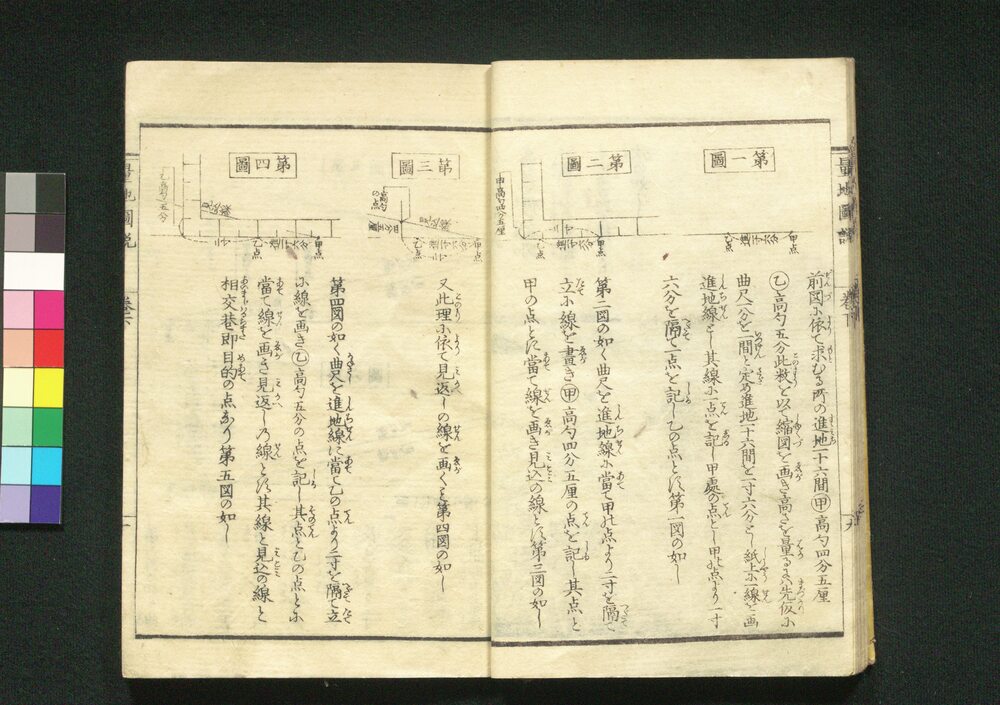 量地圖説
巻下
第一圖
甲点
乙点
第二圖
甲高勾四分五厘
甲点
乙点
前図に依て求むる所の進地十六間㊙甲高勾四分五厘
乙高勾五分此数を以て縮図を画き高さを量るには先仮に
曲尺一分を一間と定め進地十六間を一寸六分とし紙上に一線を画
進地線とし其線に一点を記し甲處の点とし甲の点より一寸
六分を隔て一点を記し乙の点とす第一図の如し
第二図の如く曲尺を進地線に當て甲の点より二寸を隔て
立に線を畫き甲高勾四分五厘の点を記し其点と
甲の点とに當て線を画き見込の線とす第三図の如し
第三圖
高勾の点
甲点
乙点
第四圖
乙高勾五分
甲点
乙点
又此理に依て見返しの線を画くこと第四図の如し
第四図の如く曲尺を進地線に當て乙の点より二寸を隔て立
に線を画き乙高勾五分の点を記し其点と乙の点とに
當て線を画き見返しの線とす其線と見込の線と
相交巷即目的の点なり第五図の如し
量地圖説
巻下